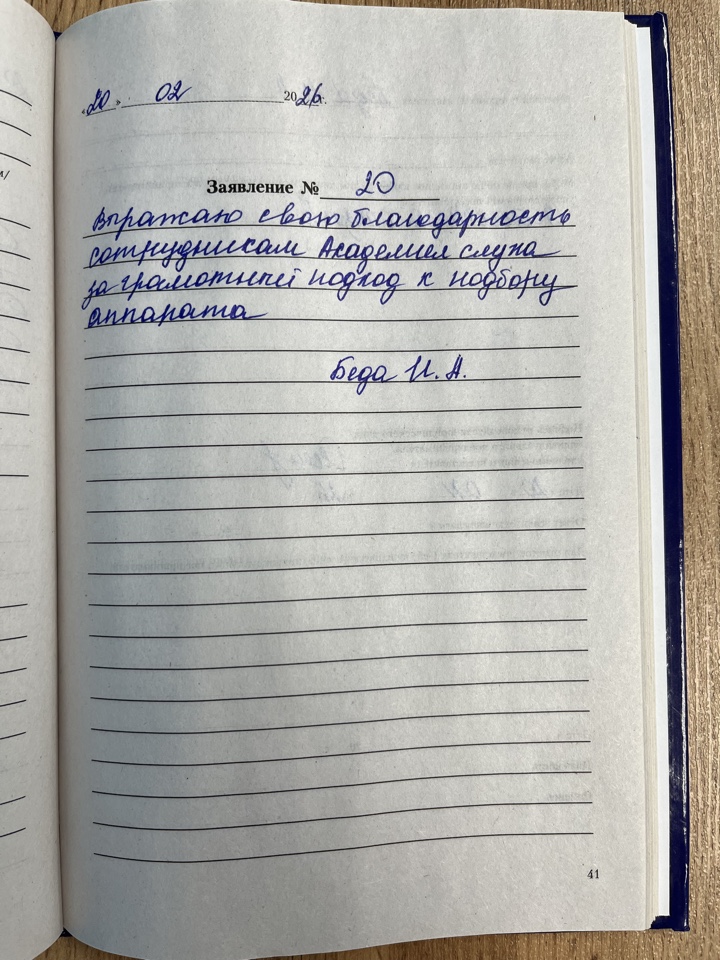 «20» 02 2026г.
Заявление № 20
Выражаю свою благодарность
сотрудникам Академией слуха
за грамотный подход к подбору
аппарата
Беда И. А.
41